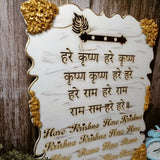 हरे कृष्ण हरे कृष्ण
कृष्ण कृष्ण हरे हरे
हरे राम हरे राम
राम राम हरे हरे
Hare Krishna Hare Krishna
Krishna Krishna Hare Hare